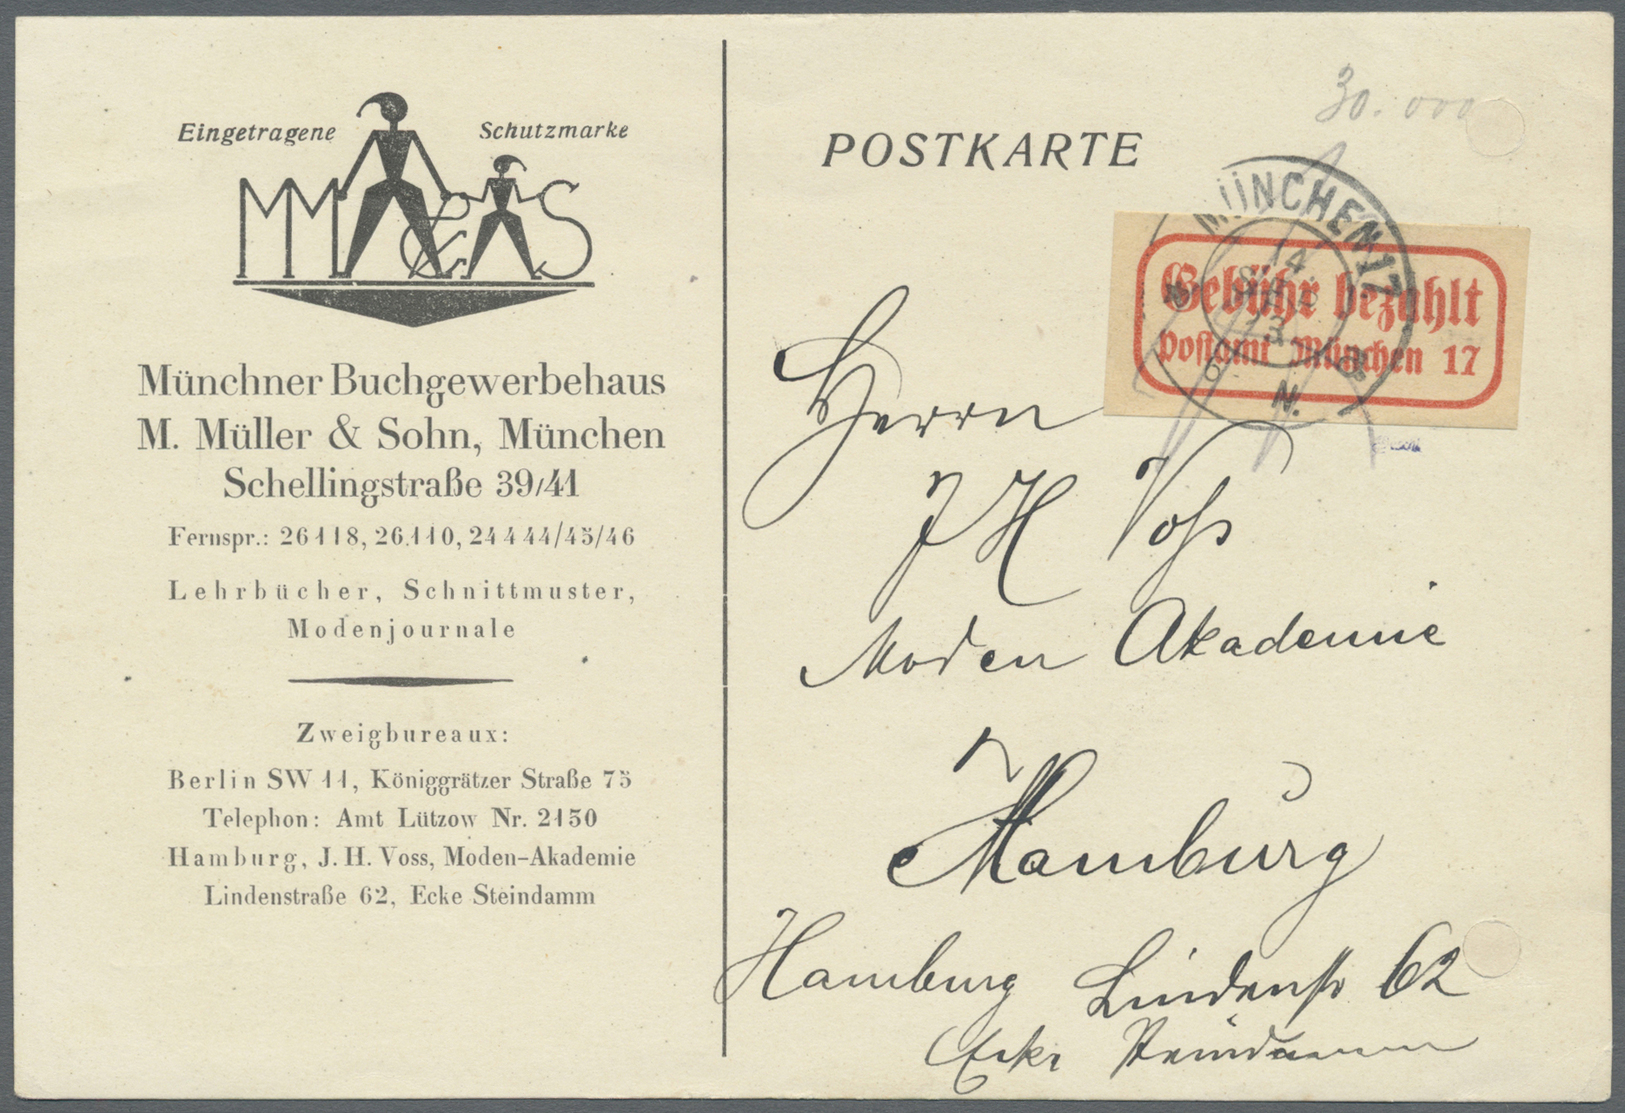 Eingetragene Schutzmarke
MM & S
Münchner Buchgewerbehaus
M. Müller & Sohn, München
Schellingstraße 39/41
Fernspr.: 26118, 26110, 24444/45/46
Lehrbücher, Schnittmuster,
Modenjournale
Zweigbureaux:
Berlin SW 11, Königgrätzer Straße 75
Telephon: Amt Lützow Nr. 2150
Hamburg, J. H. Voss, Moden-Akademie
Lindenstraße 62, Ecke Steindamm
30.000
POSTKARTE
MÜNCHEN 17
14.
SEP.
23
N.
Gebühr bezahlt
Postamt München 17
Herrn
J H Voss
Moden Akademie
Hamburg
Hamburg Lindenstr 62
Ecke Steindamm